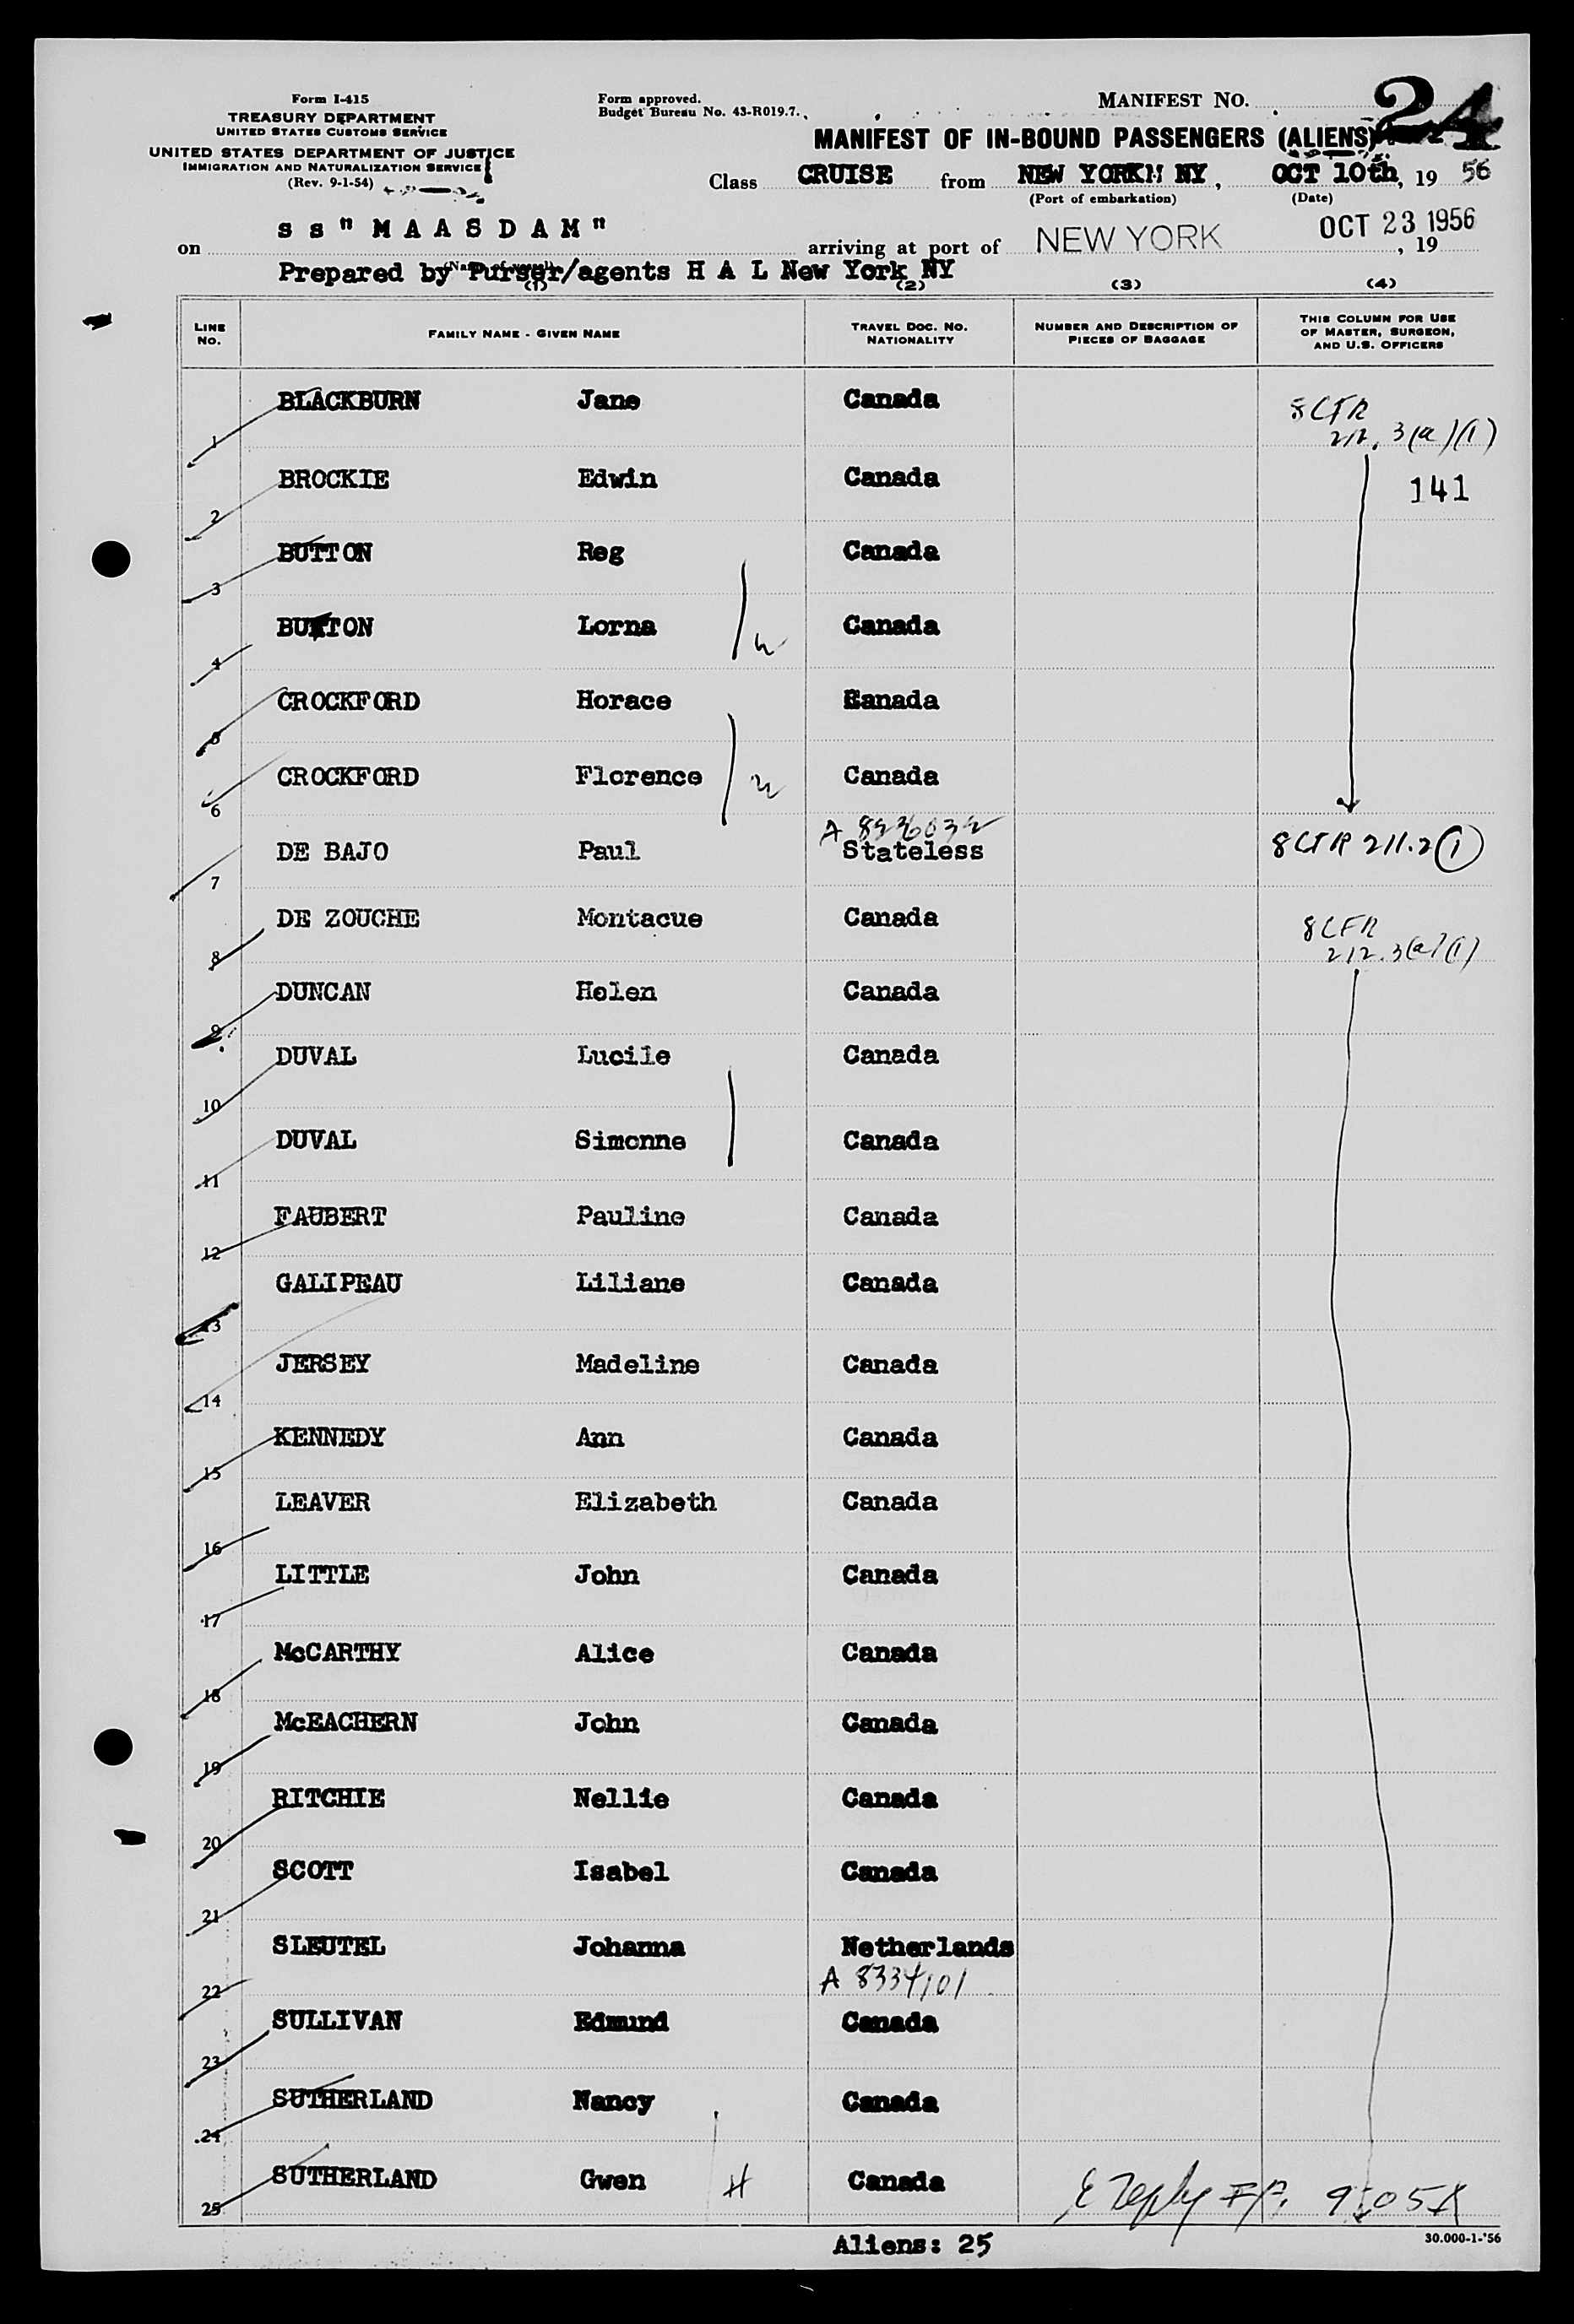 Form I-415
TREASURY DEPARTMENT
UNITED STATES CUSTOMS SERVICE
UNITED STATES DEPARTMENT OF JUSTICE
IMMIGRATION AND NATURALIZATION SERVICE
(Rev. 9-1-54)
Form approved.
Budget Bureau No. 43-R019.7.
MANIFEST NO. 24
MANIFEST OF IN-BOUND PASSENGERS (ALIENS)
Class CRUISE from NEW YORK NY, OCT 10th, 19 56
(Port of embarkation) (Date)
on s s " M A A S D A M " arriving at port of NEW YORK OCT 23 1956, 19
Prepared by Purser/agents H A L New York NY
(1) (2) (3) (4)
LINE NO.
FAMILY NAME - GIVEN NAME
TRAVEL DOC. NO. NATIONALITY
NUMBER AND DESCRIPTION OF PIECES OF BAGGAGE
THIS COLUMN FOR USE OF MASTER, SURGEON, AND U.S. OFFICERS
1 BLACKBURN Jane Canada 8 CFR 212.3(a)(1)
2 BROCKIE Edwin Canada 141
3 BUTTON Reg Canada
4 BUTTON Lorna Canada
5 CROCKFORD Horace Canada
6 CROCKFORD Florence Canada
7 DE BAJO Paul A Stateless 8 CFR 211.2(1)
8 DE ZOUCHE Montacue Canada 8 CFR 212.3(a)(1)
9 DUNCAN Helen Canada
10 DUVAL Lucile Canada
11 DUVAL Simonne Canada
12 FAUBERT Pauline Canada
13 GALIPEAU Liliane Canada
14 JERSEY Madeline Canada
15 KENNEDY Ann Canada
16 LEAVER Elizabeth Canada
17 LITTLE John Canada
18 McCARTHY Alice Canada
19 McEACHERN John Canada
20 RITCHIE Nellie Canada
21 SCOTT Isabel Canada
22 SLEUTEL Johanna Netherlands A 8334101
23 SULLIVAN Edmund Canada
24 SUTHERLAND Nancy Canada
25 SUTHERLAND Gwen Canada
Aliens: 25
30.000-1-'56